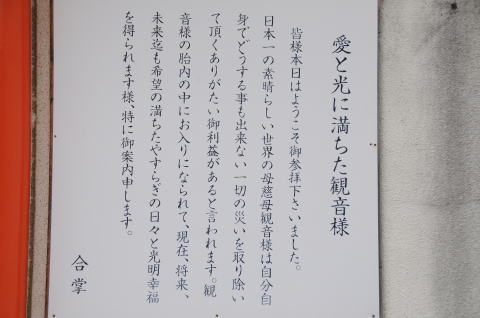 愛と光に満ちた観音様
皆様本日はようこそ御参拝下さいました。
日本一の素晴らしい世界の母慈母観音様は自分自
身でどうする事も出来ない一切の災いを取り除い
て頂くありがたい御利益があると言われます。観
音様の胎内の中にお入りになられて、現在、将来、
未来迄も希望の満ちたやすらぎの日々と光明幸福
を得られます様、特に御案内申します。
合掌